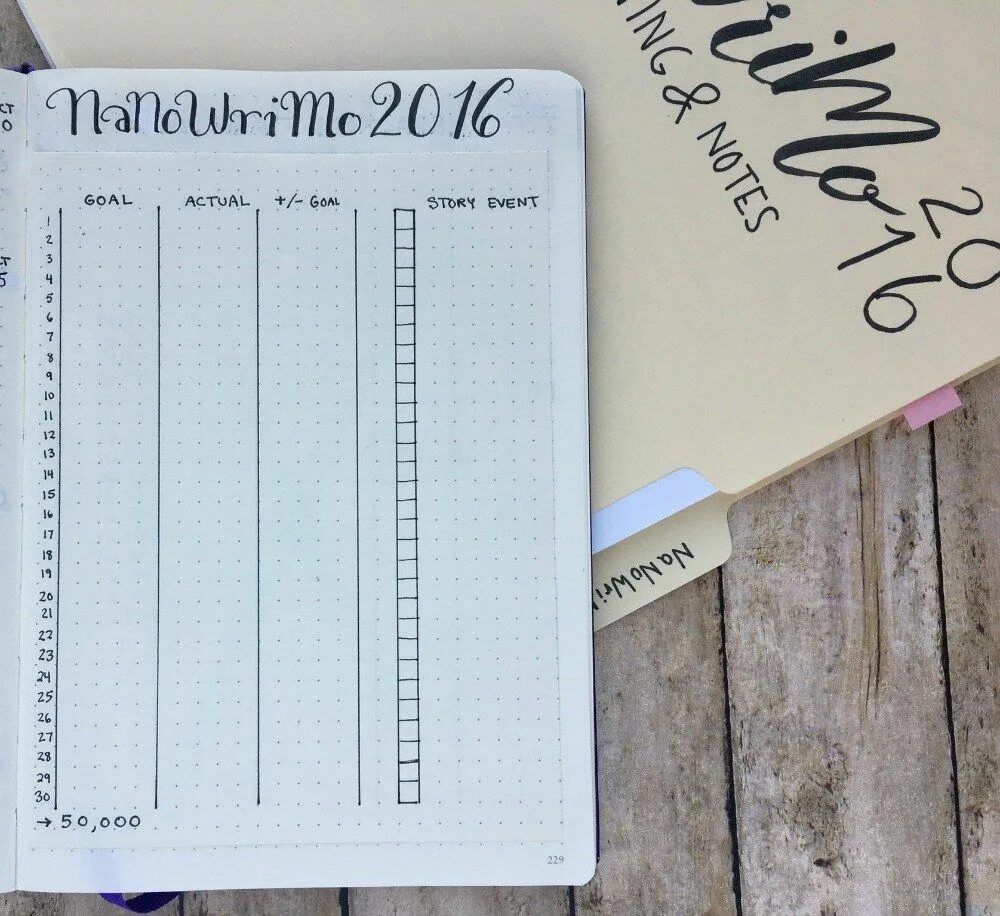 NaNoWriMo 2016
GOAL ACTUAL +/- GOAL STORY EVENT
1
2
3
4
5
6
7
8
9
10
11
12
13
14
15
16
17
18
19
20
21
22
23
24
25
26
27
28
29
30
→ 50,000
229
WriMo
& NOTES
2016
NaNoWri